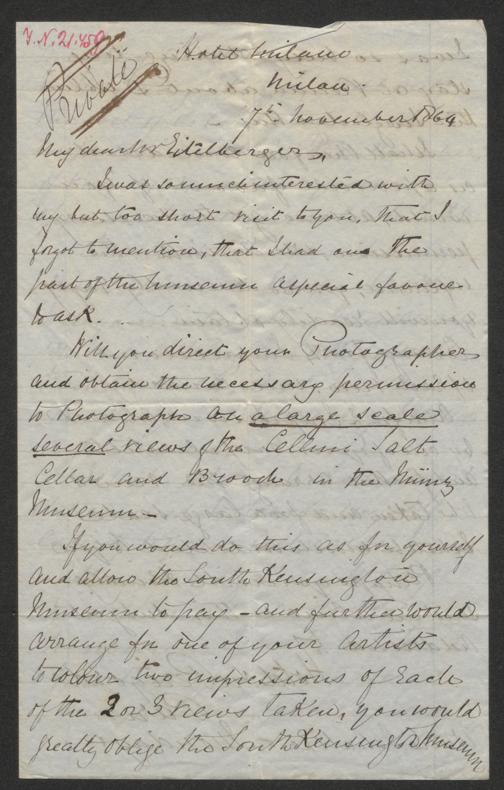 I.N. 21.459
Private
Hotel Milano
Milan.
7th November 1864
My dear Mr Eitelberger,
I was so much interested with
my but too short visit to you, that I
forgot to mention, that I had on the
part of the Museum a special favour
to ask.
Will you direct your Photographer
and obtain the necessary permission
to Photograph on a large scale
several views of the Cellini Salt
Cellar and Brooch in the Münz
Museum -
If you would do this as for yourself
and allow the South Kensington
Museum to pay - and further would
arrange for one of your artists
to colour two impressions of each
of the 2 or 3 views taken, you would
greatly oblige the South Kensington Museum